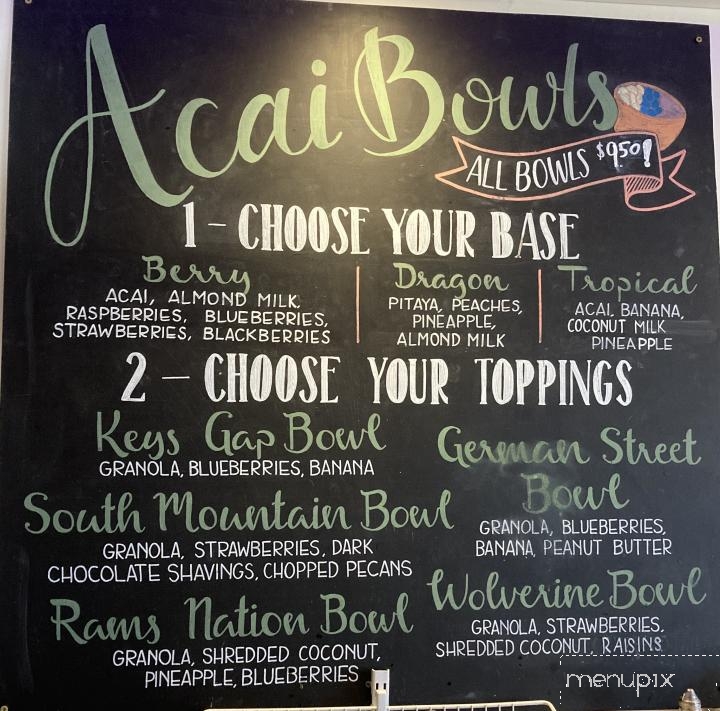 Acai Bowls
ALL BOWLS $950!
1 - CHOOSE YOUR BASE
Berry
ACAI, ALMOND MILK,
RASPBERRIES, BLUEBERRIES,
STRAWBERRIES, BLACKBERRIES
Dragon
PITAYA, PEACHES,
PINEAPPLE,
ALMOND MILK
Tropical
ACAI, BANANA,
COCONUT MILK
PINEAPPLE
2 - CHOOSE YOUR TOPPINGS
Keys Gap Bowl
GRANOLA, BLUEBERRIES, BANANA
South Mountain Bowl
GRANOLA, STRAWBERRIES, DARK
CHOCOLATE SHAVINGS, CHOPPED PECANS
Rams Nation Bowl
GRANOLA, SHREDDED COCONUT,
PINEAPPLE, BLUEBERRIES
German Street
Bowl
GRANOLA, BLUEBERRIES,
BANANA, PEANUT BUTTER
Wolverine Bowl
GRANOLA, STRAWBERRIES,
SHREDDED COCONUT, RAISINS
menupix